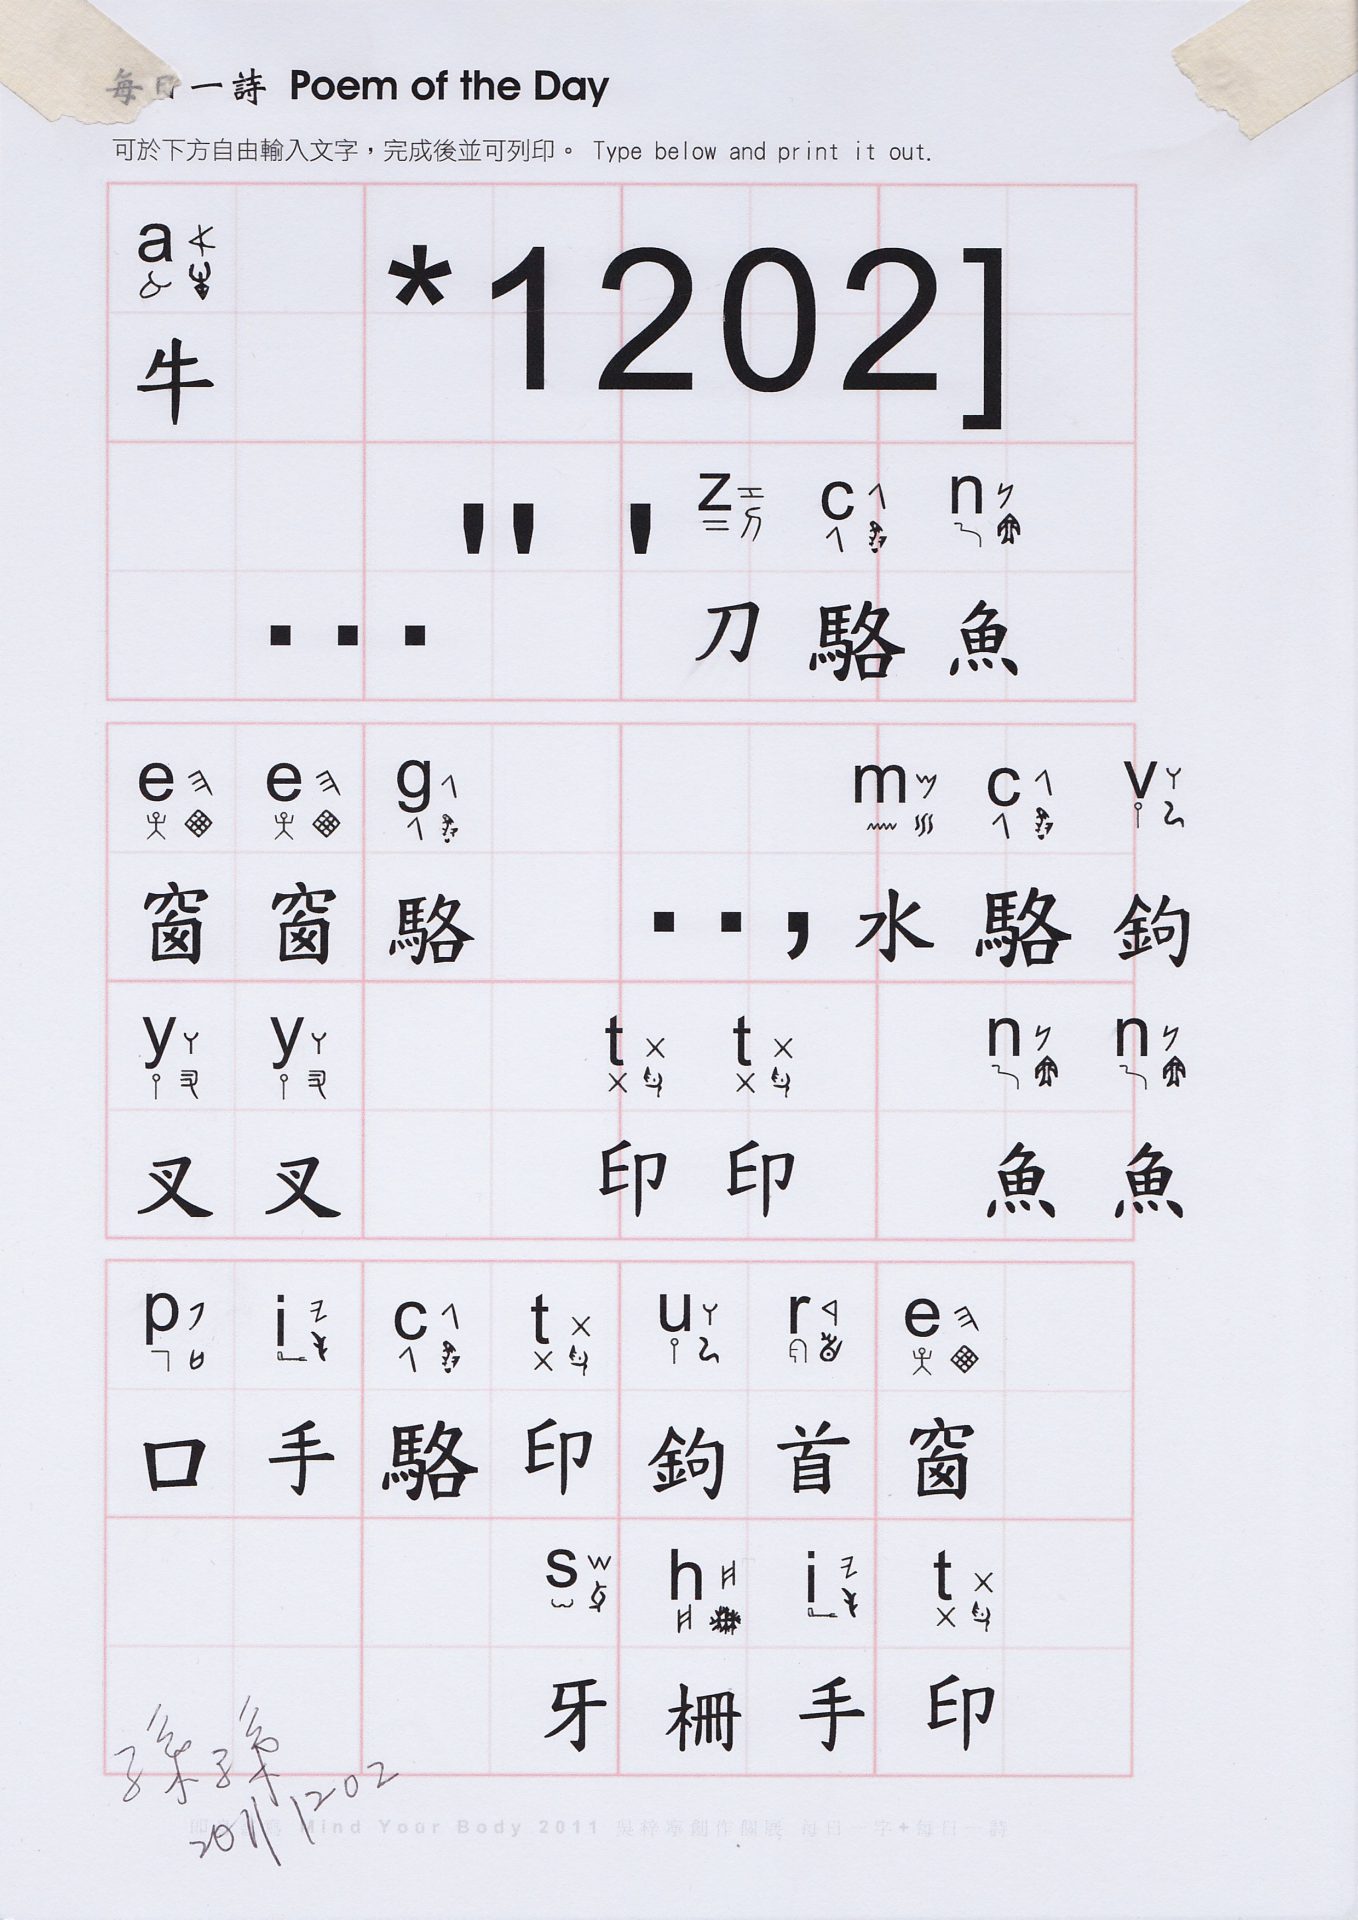 每日一詩 Poem of the Day
可於下方自由輸入文字，完成後並可列印。 Type below and print it out.
a *1202]
牛
" ' z c n
... 刀 駱 魚
e e g m c v
窗 窗 駱 .., 水 駱 鉤
y y t t n n
叉 叉 印 印 魚 魚
p i c t u r e
口 手 駱 印 鉤 首 窗
s h i t
牙 柵 手 印
2011 1202
Mind Your Body 2011 吳梓寧創作個展 每日一字+每日一詩